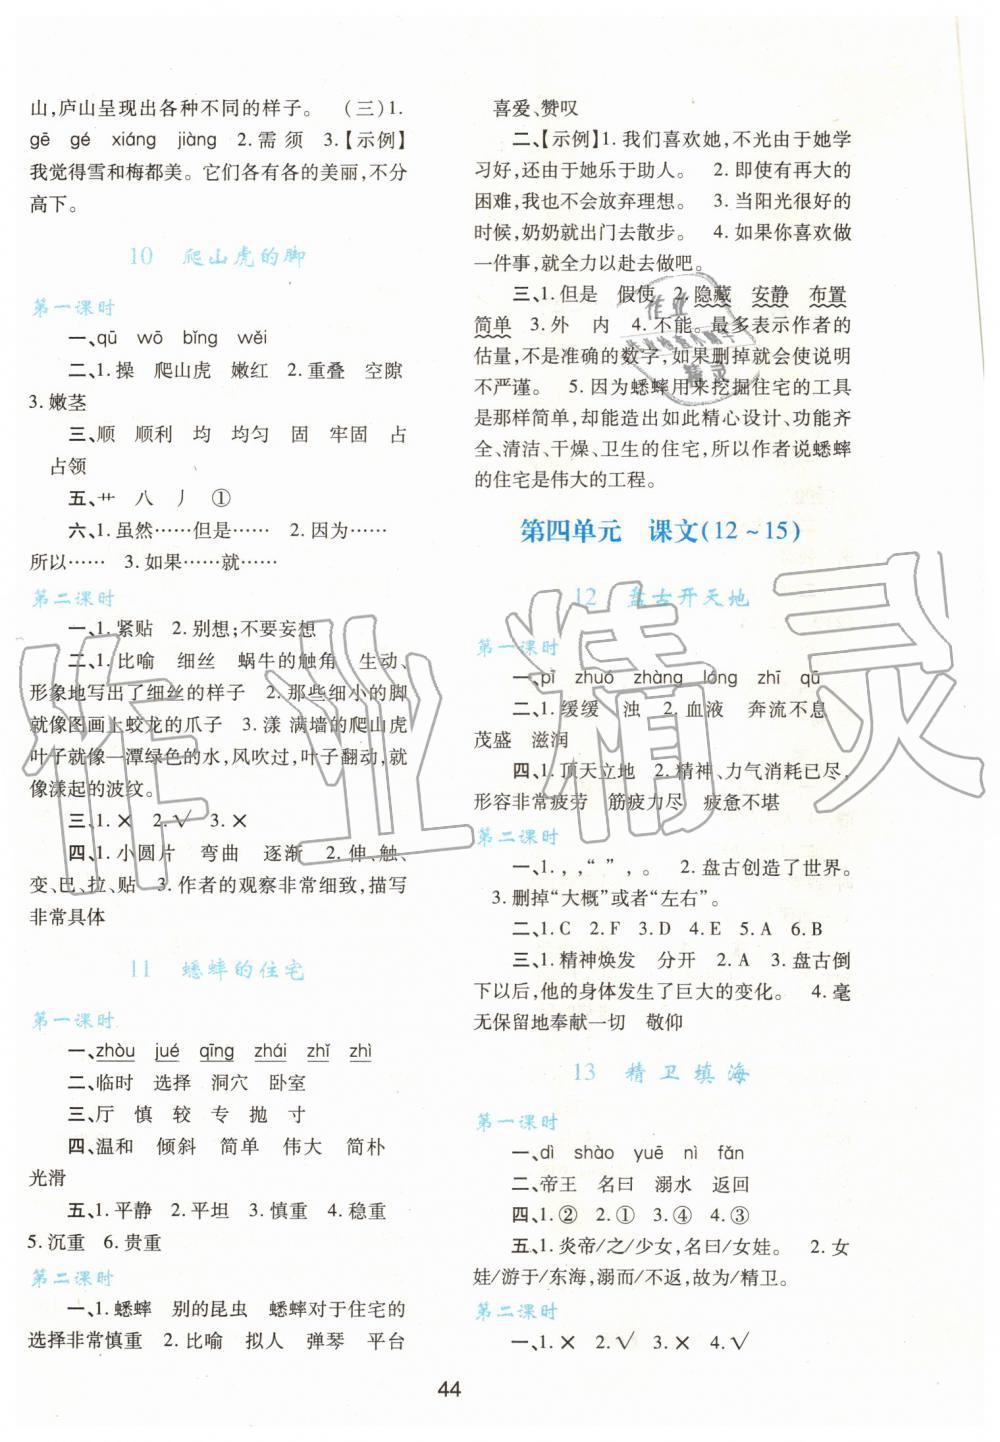 山,庐山呈现出各种不同的样子。 (三)1.
gē gé xiáng jiàng 2.需 须 3.【示例】
我觉得雪和梅都美。它们各有各的美丽,不分
高下。
10 爬山虎的脚
第一课时
一、qū wō bǐng wěi
二、1.操 爬山虎 嫩红 2.重叠 空隙
3.嫩茎
三、顺 顺利 均 均匀 固 牢固 占
占领
五、艹 八 丿 ①
六、1.虽然……但是…… 2.因为……
所以…… 3.如果……就……
第二课时
一、1.紧贴 2.别想;不要妄想
二、1.比喻 细丝 蜗牛的触角 生动、
形象地写出了细丝的样子 2.那些细小的脚
就像图画上蛟龙的爪子 3.漾 满墙的爬山虎
叶子就像一潭绿色的水,风吹过,叶子翻动,就
像漾起的波纹。
三、1.× 2.√ 3.×
四、1.小圆片 弯曲 逐渐 2.伸、触、
变、巴、拉、贴 3.作者的观察非常细致,描写
非常具体
11 蟋蟀的住宅
第一课时
一、zhòu jué qīng zhái zhǐ zhì
二、临时 选择 洞穴 卧室
三、厅 慎 较 专 抛 寸
四、温和 倾斜 简单 伟大 简朴
光滑
五、1.平静 2.平坦 3.慎重 4.稳重
5.沉重 6.贵重
第二课时
一、1.蟋蟀 别的昆虫 蟋蟀对于住宅的
选择非常慎重 2.比喻 拟人 弹琴 平台
喜爱、赞叹
二、【示例】1.我们喜欢她,不光由于她学
习好,还由于她乐于助人。 2.即使有再大的
困难,我也不会放弃理想。 3.当阳光很好的
时候,奶奶就出门去散步。 4.如果你喜欢做
一件事,就全力以赴去做吧。
三、1.但是 假使 2.隐藏 安静 布置
简单 3.外 内 4.不能。最多表示作者的
估量,不是准确的数字,如果删掉就会使说明
不严谨。 5.因为蟋蟀用来挖掘住宅的工具
是那样简单,却能造出如此精心设计、功能齐
全、清洁、干燥、卫生的住宅,所以作者说蟋蟀
的住宅是伟大的工程。
第四单元 课文(12~15)
12 盘古开天地
第一课时
一、pī zhuó zhàng lóng zhī qū
二、1.缓缓 浊 2.血液 奔流不息
茂盛 滋润
四、1.顶天立地 2.精神、力气消耗已尽,
形容非常疲劳 筋疲力尽 疲惫不堪
第二课时
一、1.,“ ”,。 2.盘古创造了世界。
3.删掉“大概”或者“左右”。
二、1.C 2.F 3.D 4.E 5.A 6.B
三、1.精神焕发 分开 2.A 3.盘古倒
下以后,他的身体发生了巨大的变化。 4.毫
无保留地奉献一切 敬仰
13 精卫填海
第一课时
一、dì shào yuē nì fǎn
二、帝王 名曰 溺水 返回
四、1.② 2.① 3.④ 4.③
五、1.炎帝/之/少女,名曰/女娃。 2.女
娃/游于/东海,溺而/不返,故为/精卫。
第二课时
一、1.× 2.√ 3.× 4.√
44
作业精灵